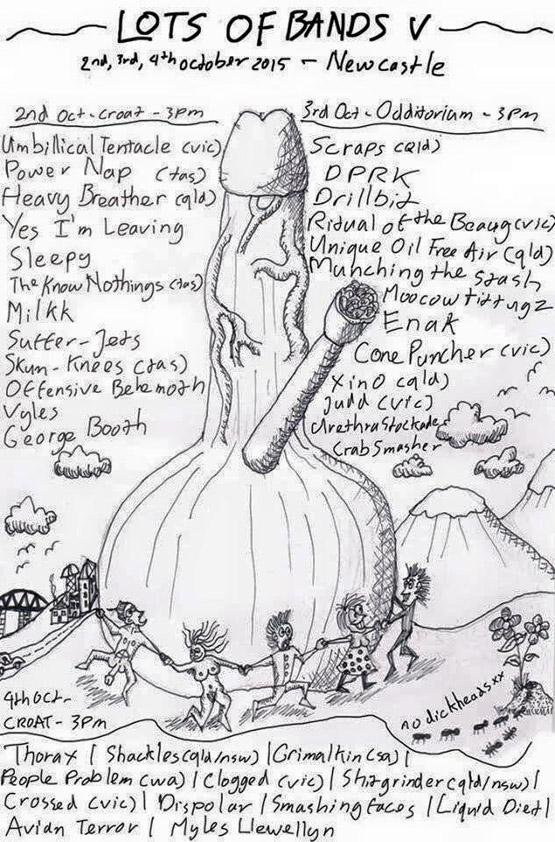 LOTS OF BANDS V
2nd, 3rd, 4th october 2015 - Newcastle
2nd Oct - Croat - 3pm
Umbillical Tentacle (vic)
Power Nap (tas)
Heavy Breather (qld)
Yes I'm Leaving
Sleepy
The Know Nothings (tas)
Milkk
Suffer-Jets
Skum-Knees (tas)
Offensive Behemoth
Vyles
George Booth
3rd Oct - Odditorium - 3pm
Scraps (qld)
DPRK
Drillbit
Ritual of the Beaug (vic)
Unique Oil Free Air (qld)
Munching the Stash
Moocow tittugz
Enak
Cone Puncher (vic)
Xino (qld)
Judd (vic)
Urethra Stockade
Crab Smasher
4th Oct -
CROAT - 3pm
no dickheads xx
Thorax | Shackles (qld/nsw) | Grimalkin (sa) |
People Problem (wa) | Clogged (vic) | Shitgrinder (qld/nsw) |
Crossed (vic) | Dispolar | Smashing Faces | Liquid Diet |
Avian Terror | Myles Llewellyn